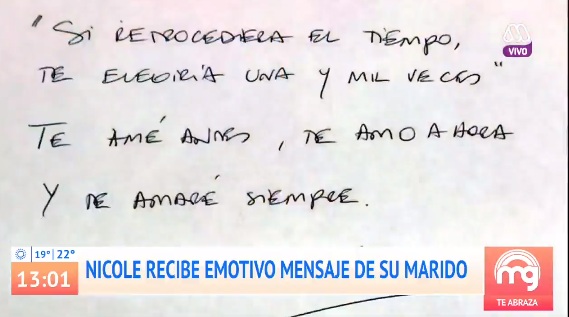 "SI RETROCEDIERA EL TIEMPO,
TE ELEGIRÍA UNA Y MIL VECES"
TE AMÉ ANTES, TE AMO AHORA
Y TE AMARÉ SIEMPRE.
VIVO
19° 22°
13:01
NICOLE RECIBE EMOTIVO MENSAJE DE SU MARIDO
mg
TE ABRAZA